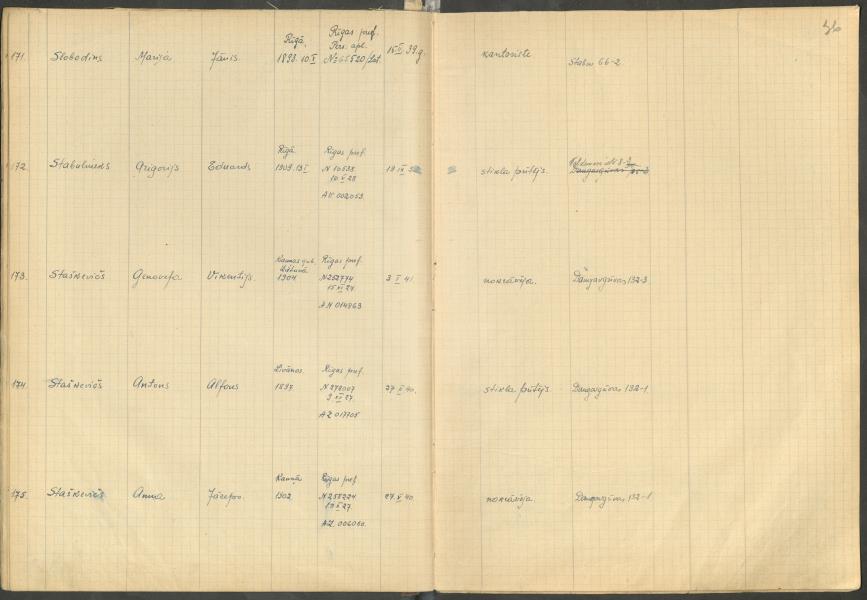 36
171. Slobodins Marija Jānis
Rīgā
1893. 10 V
Rīgas pref.
Pers. apl.
№ 65520
15 V 39.g.
kantoriste
Stabu 66-2
172. Stabulnieks Grigorijs Eduards
Rīgā
1909. 13 I
Rīgas pref.
N 10535
10 V 28
AV. 002053.
19 IV
stikla pūtējs.
Daugavgrīvas
173. Staškevičs Genovefa Vikentijs.
Kaunas gub.
Lietuvā
1904
Rīgas pref.
N 252774
15 VI 27
AN 014863
3 I 41.
Daugavgrīvas 132-3
174. Staškevičs Antons Alfons
Līvānos
1897
Rīgas pref.
N 272007
9 XII 27
AZ 017705
27 V 40.
stikla pūtējs
Daugavgrīvas 132-1
175. Staškevičs Anna Jāzeps.
Kaunā
1902
Rīgas pref
N 255224
19 VI 27
AZ 006010.
27. V 40.
Daugavgrīvas 132-1